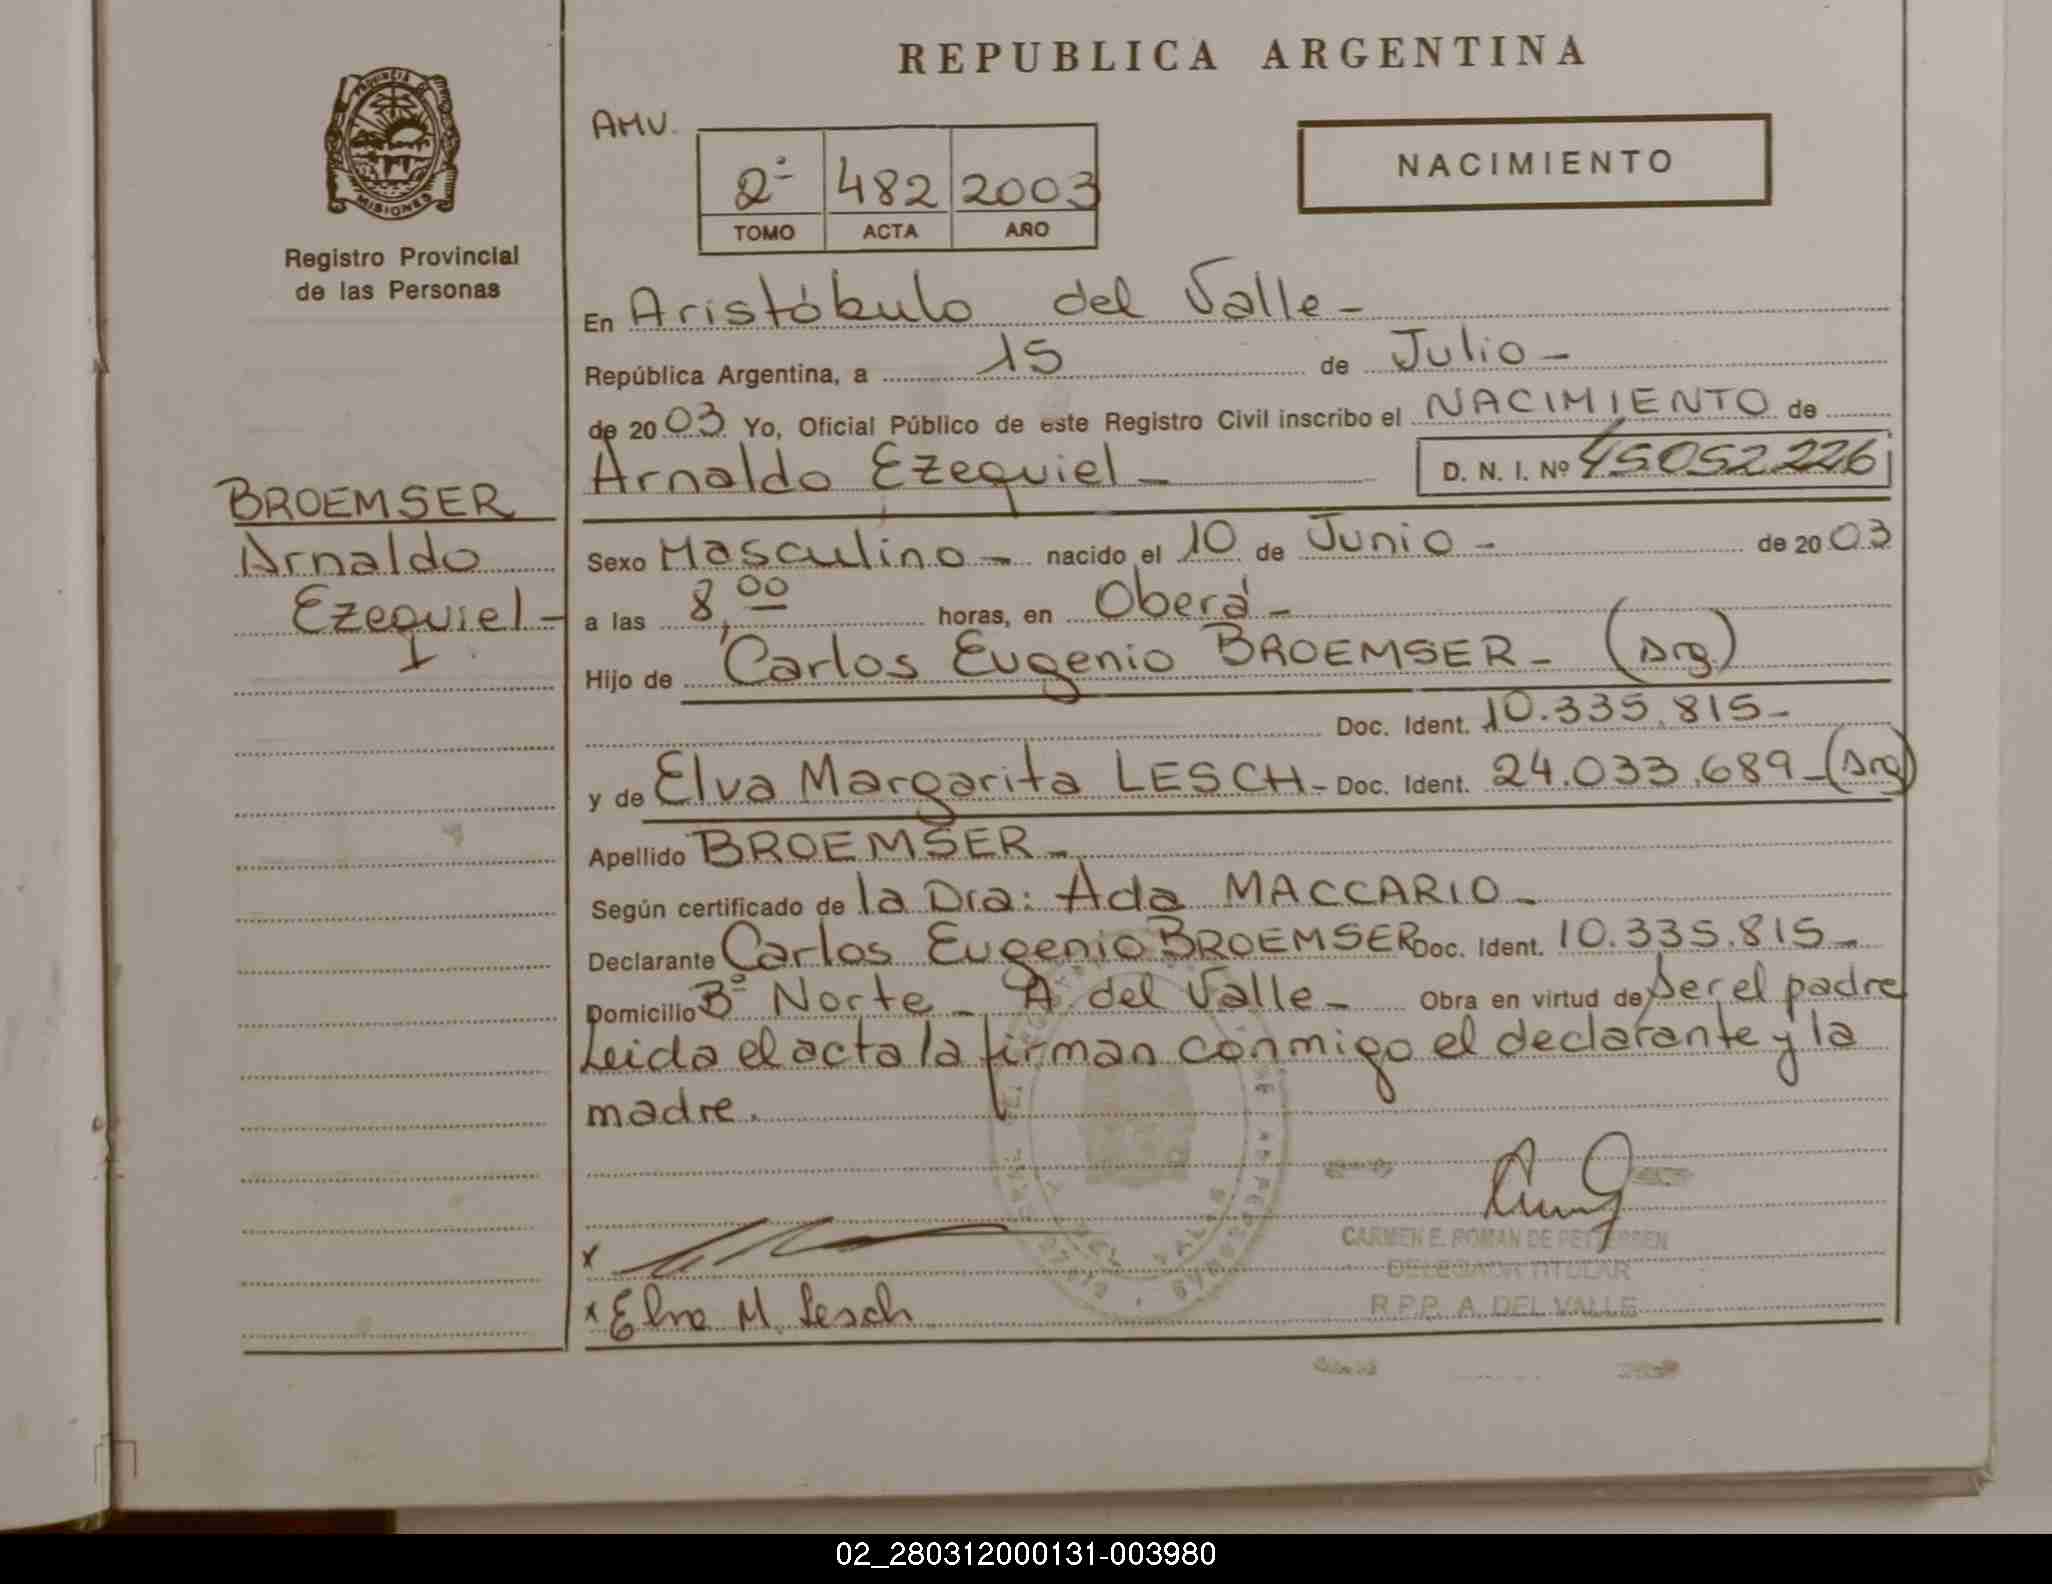 REPUBLICA ARGENTINA
PROVINCIA DE
MISIONES
Registro Provincial
de las Personas
AMV.
2º 482 2003
TOMO ACTA AÑO
NACIMIENTO
En Aristóbulo del Valle -
República Argentina, a 15 de Julio -
de 2003 Yo, Oficial Público de este Registro Civil inscribo el NACIMIENTO de
Arnaldo Ezequiel - D. N. I. Nº 45052226
BROEMSER
Arnaldo
Ezequiel -
Sexo Masculino - nacido el 10 de Junio - de 2003
a las 8,00 horas, en Oberá -
Hijo de Carlos Eugenio BROEMSER - (Arg.)
Doc. Ident. 10.335.815 -
y de Elva Margarita LESCH - Doc. Ident. 24.033.689 - (Arg)
Apellido BROEMSER -
Según certificado de la Dra: Ada MACCARIO -
Declarante Carlos Eugenio BROEMSER Doc. Ident. 10.335.815 -
Domicilio Bº Norte - A. del Valle - Obra en virtud de ser el padre
Leida el acta la firman conmigo el declarante y la
madre.
CARMEN E. ROMAN DE PETTERSEN
DELEGADA TITULAR
R.P.P. A. DEL VALLE
x
x Elva M. Lesch
02_280312000131-003980